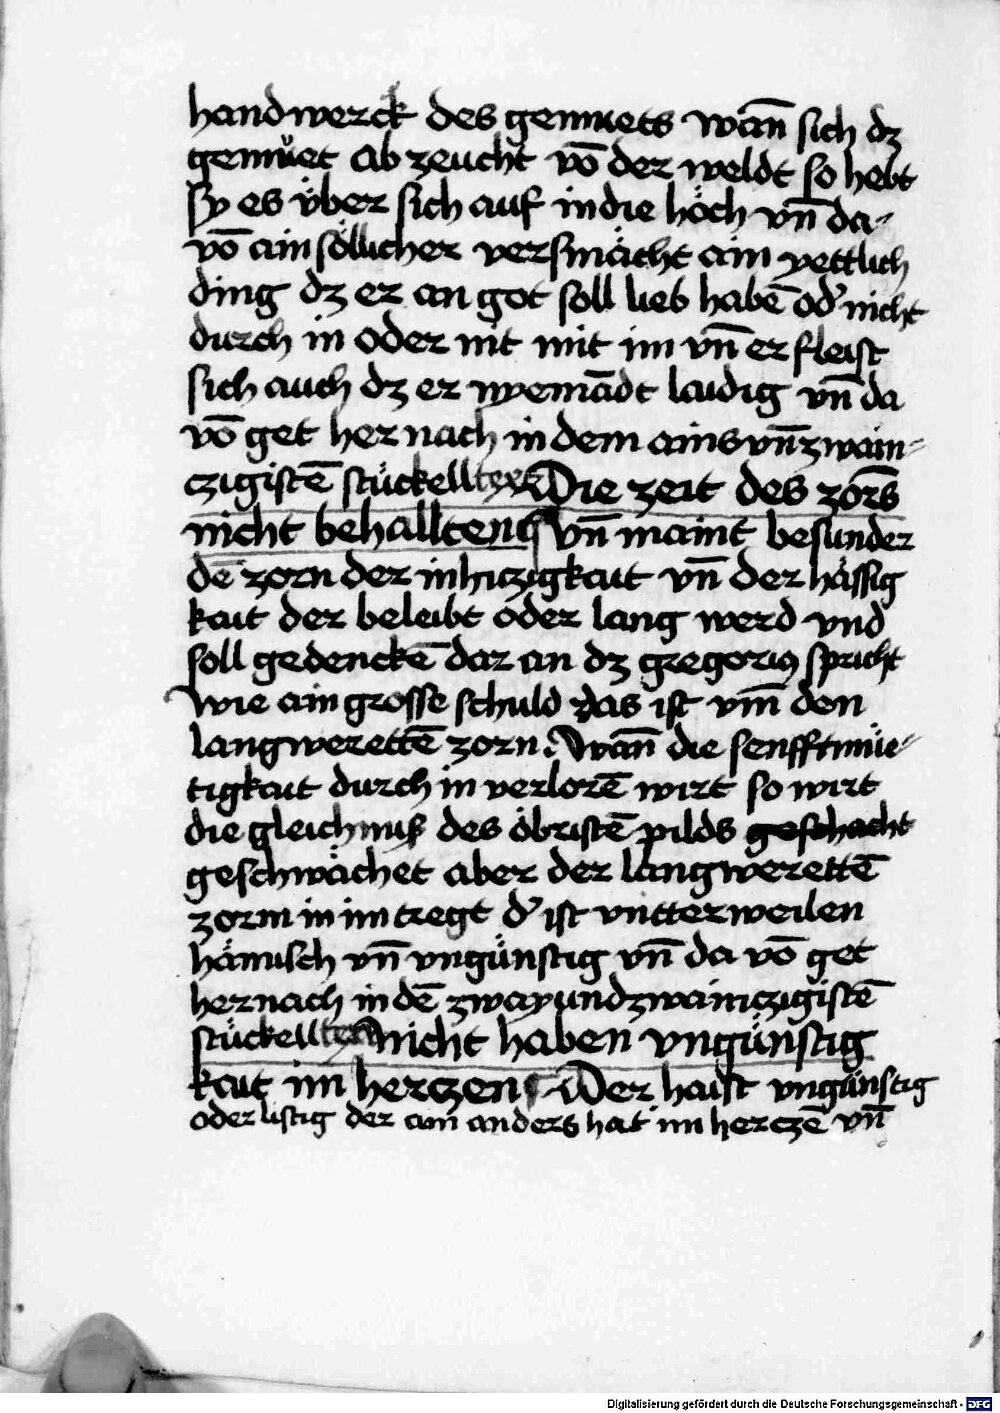 handwerck des gemuets wañ sich dz
gemüet ab zeucht võ der weldt so hebt
sy es über sich auf in die höch vñ da-
võ ain söllicher versmächt ain yettlich
ding dz er an got soll lieb habẽ od' nicht
durch in oder nit mit im vñ er fleist
sich auch dz er nyemãdt laidig vñ da
võ get her nach in dem ains vñ zwain-
czigistẽ stückell text Die zeit des zorns
nicht behallten vñ maint besunder
dẽ zorn der in hiczigkait vñ der hässig
kait der beleibt oder lang werd vnd
soll gedenckẽ dar an dz gregorius spricht
wie ain grosse schuld das ist vm̃ den
langwerettẽ zorn. Wañ die senfftmüe-
tigkait durch in verlorẽ wirt so wirt
die gleichnuß des öbristẽ pilds geschacht
geschwächet aber der langwerettẽ
zorm in im tregt d' ist vntterweilen
hämisch vñ vngünstig vñ da võ get
her nach in dẽ zway und zwainczigistẽ
stückell text nicht haben vngünstig
kait im herczen Der haist vngünstig
oder listig der ain anders hat im herczẽ vñ
Digitalisierung gefördert durch die Deutsche Forschungsgemeinschaft - DFG